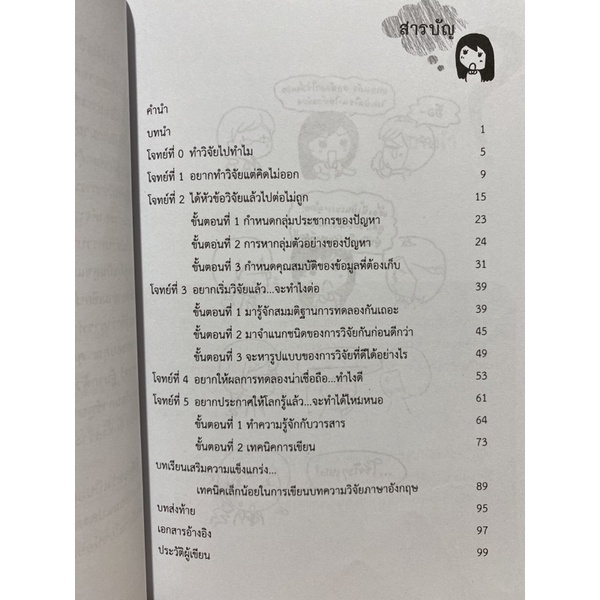 สารบัญ
คำนำ
บทนำ 1
โจทย์ที่ 0 ทำวิจัยไปทำไม 5
โจทย์ที่ 1 อยากทำวิจัยแต่คิดไม่ออก 9
โจทย์ที่ 2 ได้หัวข้อวิจัยแล้วไปต่อไม่ถูก 15
ขั้นตอนที่ 1 กำหนดกลุ่มประชากรของปัญหา 23
ขั้นตอนที่ 2 การหากลุ่มตัวอย่างของปัญหา 24
ขั้นตอนที่ 3 กำหนดคุณสมบัติของข้อมูลที่ต้องเก็บ 31
โจทย์ที่ 3 อยากเริ่มวิจัยแล้ว...จะทำไงต่อ 39
ขั้นตอนที่ 1 มารู้จักสมมติฐานการทดลองกันเถอะ 39
ขั้นตอนที่ 2 มาจำแนกชนิดของการวิจัยกันก่อนดีกว่า 45
ขั้นตอนที่ 3 จะหารูปแบบของการวิจัยที่ดีได้อย่างไร 49
โจทย์ที่ 4 อยากให้ผลการทดลองน่าเชื่อถือ...ทำไงดี 53
โจทย์ที่ 5 อยากประกาศให้โลกรู้แล้ว...จะทำได้ไหมหนอ 61
ขั้นตอนที่ 1 ทำความรู้จักกับวารสาร 64
ขั้นตอนที่ 2 เทคนิคการเขียน 73
บทเรียนเสริมความแข็งแกร่ง...
เทคนิคเล็กน้อยในการเขียนบทความวิจัยภาษาอังกฤษ 89
บทส่งท้าย 95
เอกสารอ้างอิง 97
ประวัติผู้เขียน 99